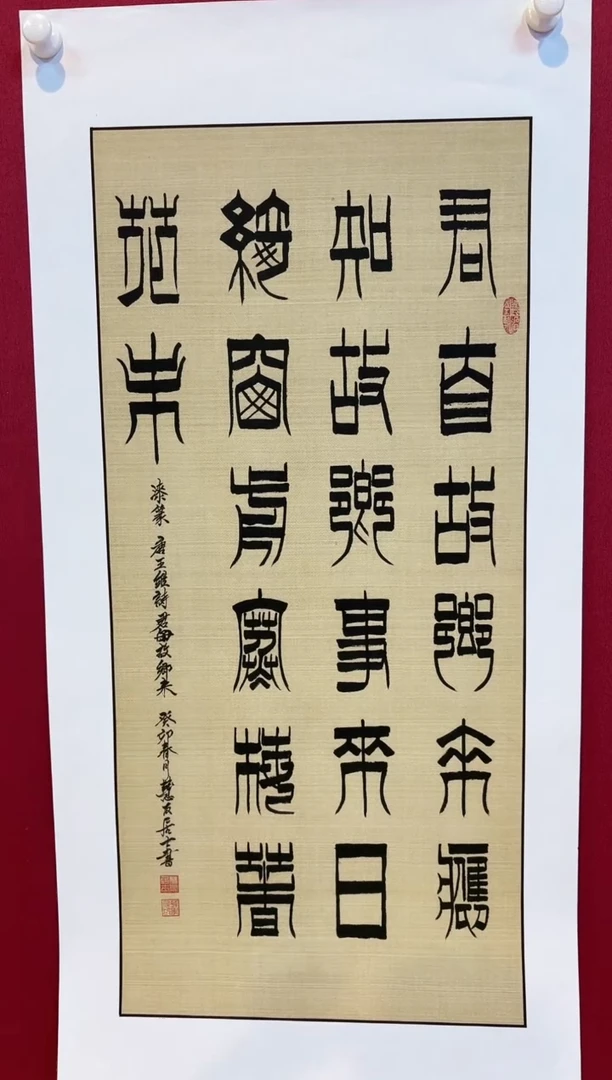 君自故鄉來應
知故鄉事來日
綺窗前寒梅著
花未
漆篆 唐王維詩君自故鄉來 癸卯春月慧居士書